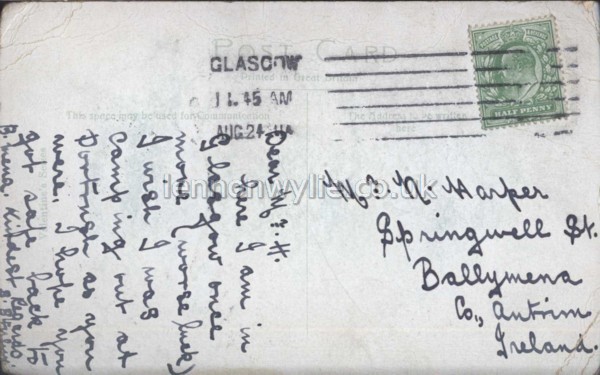 POST CARD
Printed in Great Britain
This space may be used for Communication
The Address to be written here
GLASGOW
11.45 AM
AUG 24
HALF PENNY
lennonwylie.co.uk
Dear Mr. H.
Here I am in
Glasgow once
more (worse luck)
I wish I was
camping out at
Portrush as you
were. I hope you
got safe back to
B'mena. Kindest Regards
Mr. N. Harper
Springwell St.
Ballymena
Co., Antrim
Ireland.